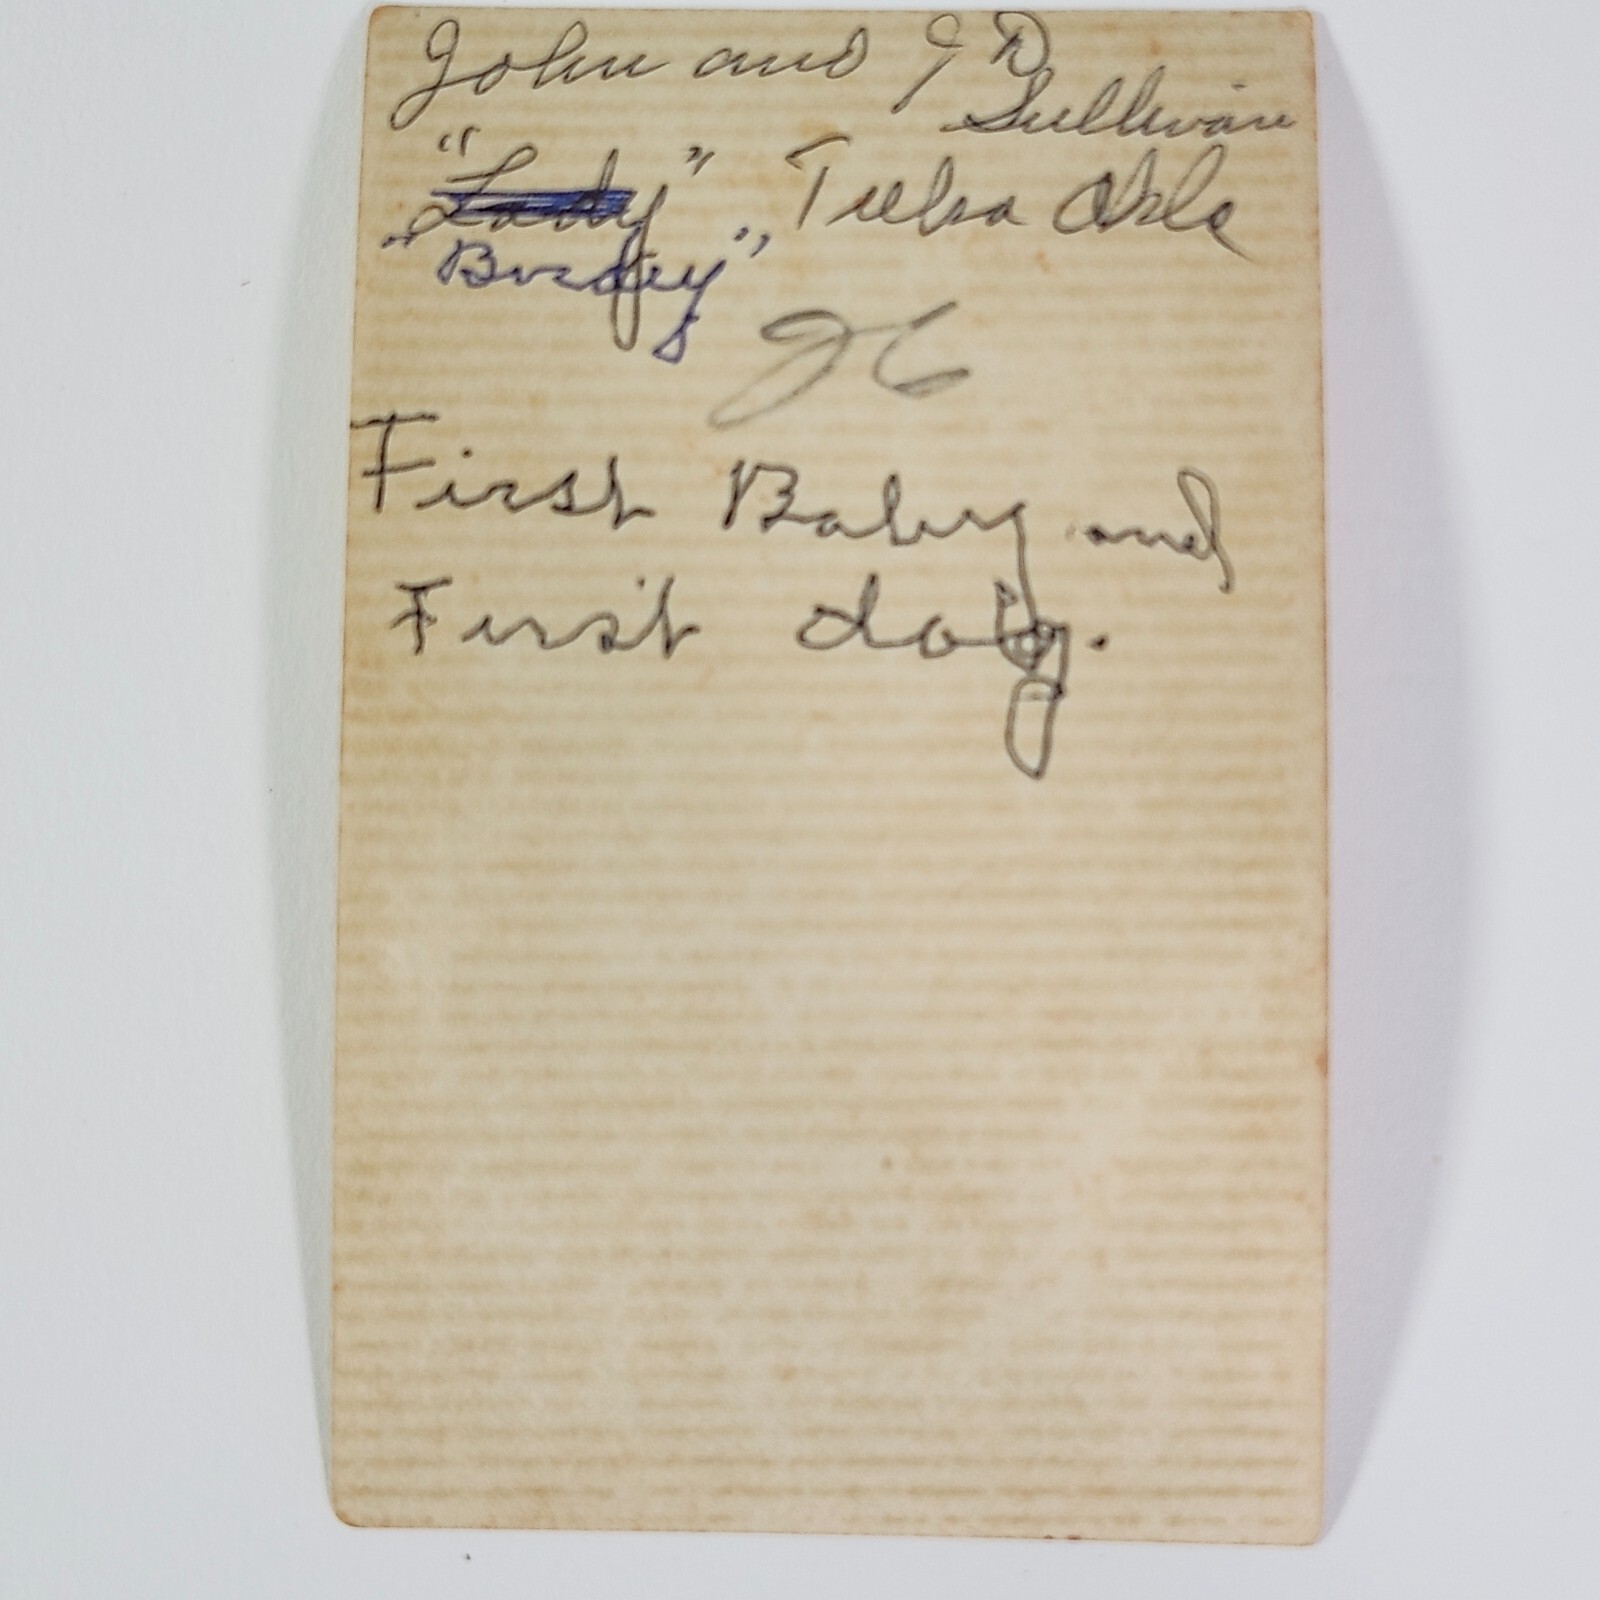 John and J D
Sullivan
"Lady" Tulsa Okla
First Baby and
First dog.